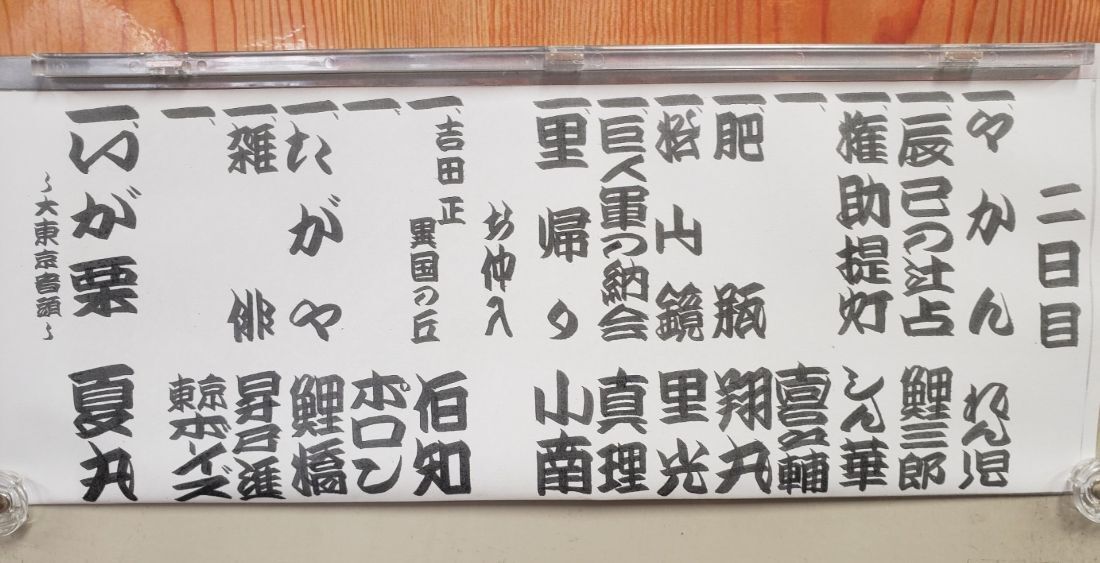 二日目
一、やかん れん児
一、辰巳の辻占 鯉三郎
一、権助提灯 しん華
一、 喜之輔
一、肥瓶 翔丸
一、松山鏡 里光
一、巨人軍の納会 真理
一、里帰り 小南
お仲入
一、吉田正 異国の丘 伯知
一、 ポロン
一、たがや 鯉橋
一、雑俳 昇乃進
一、 東京ボーイズ
一、いが栗 夏丸
〜大東京音頭〜